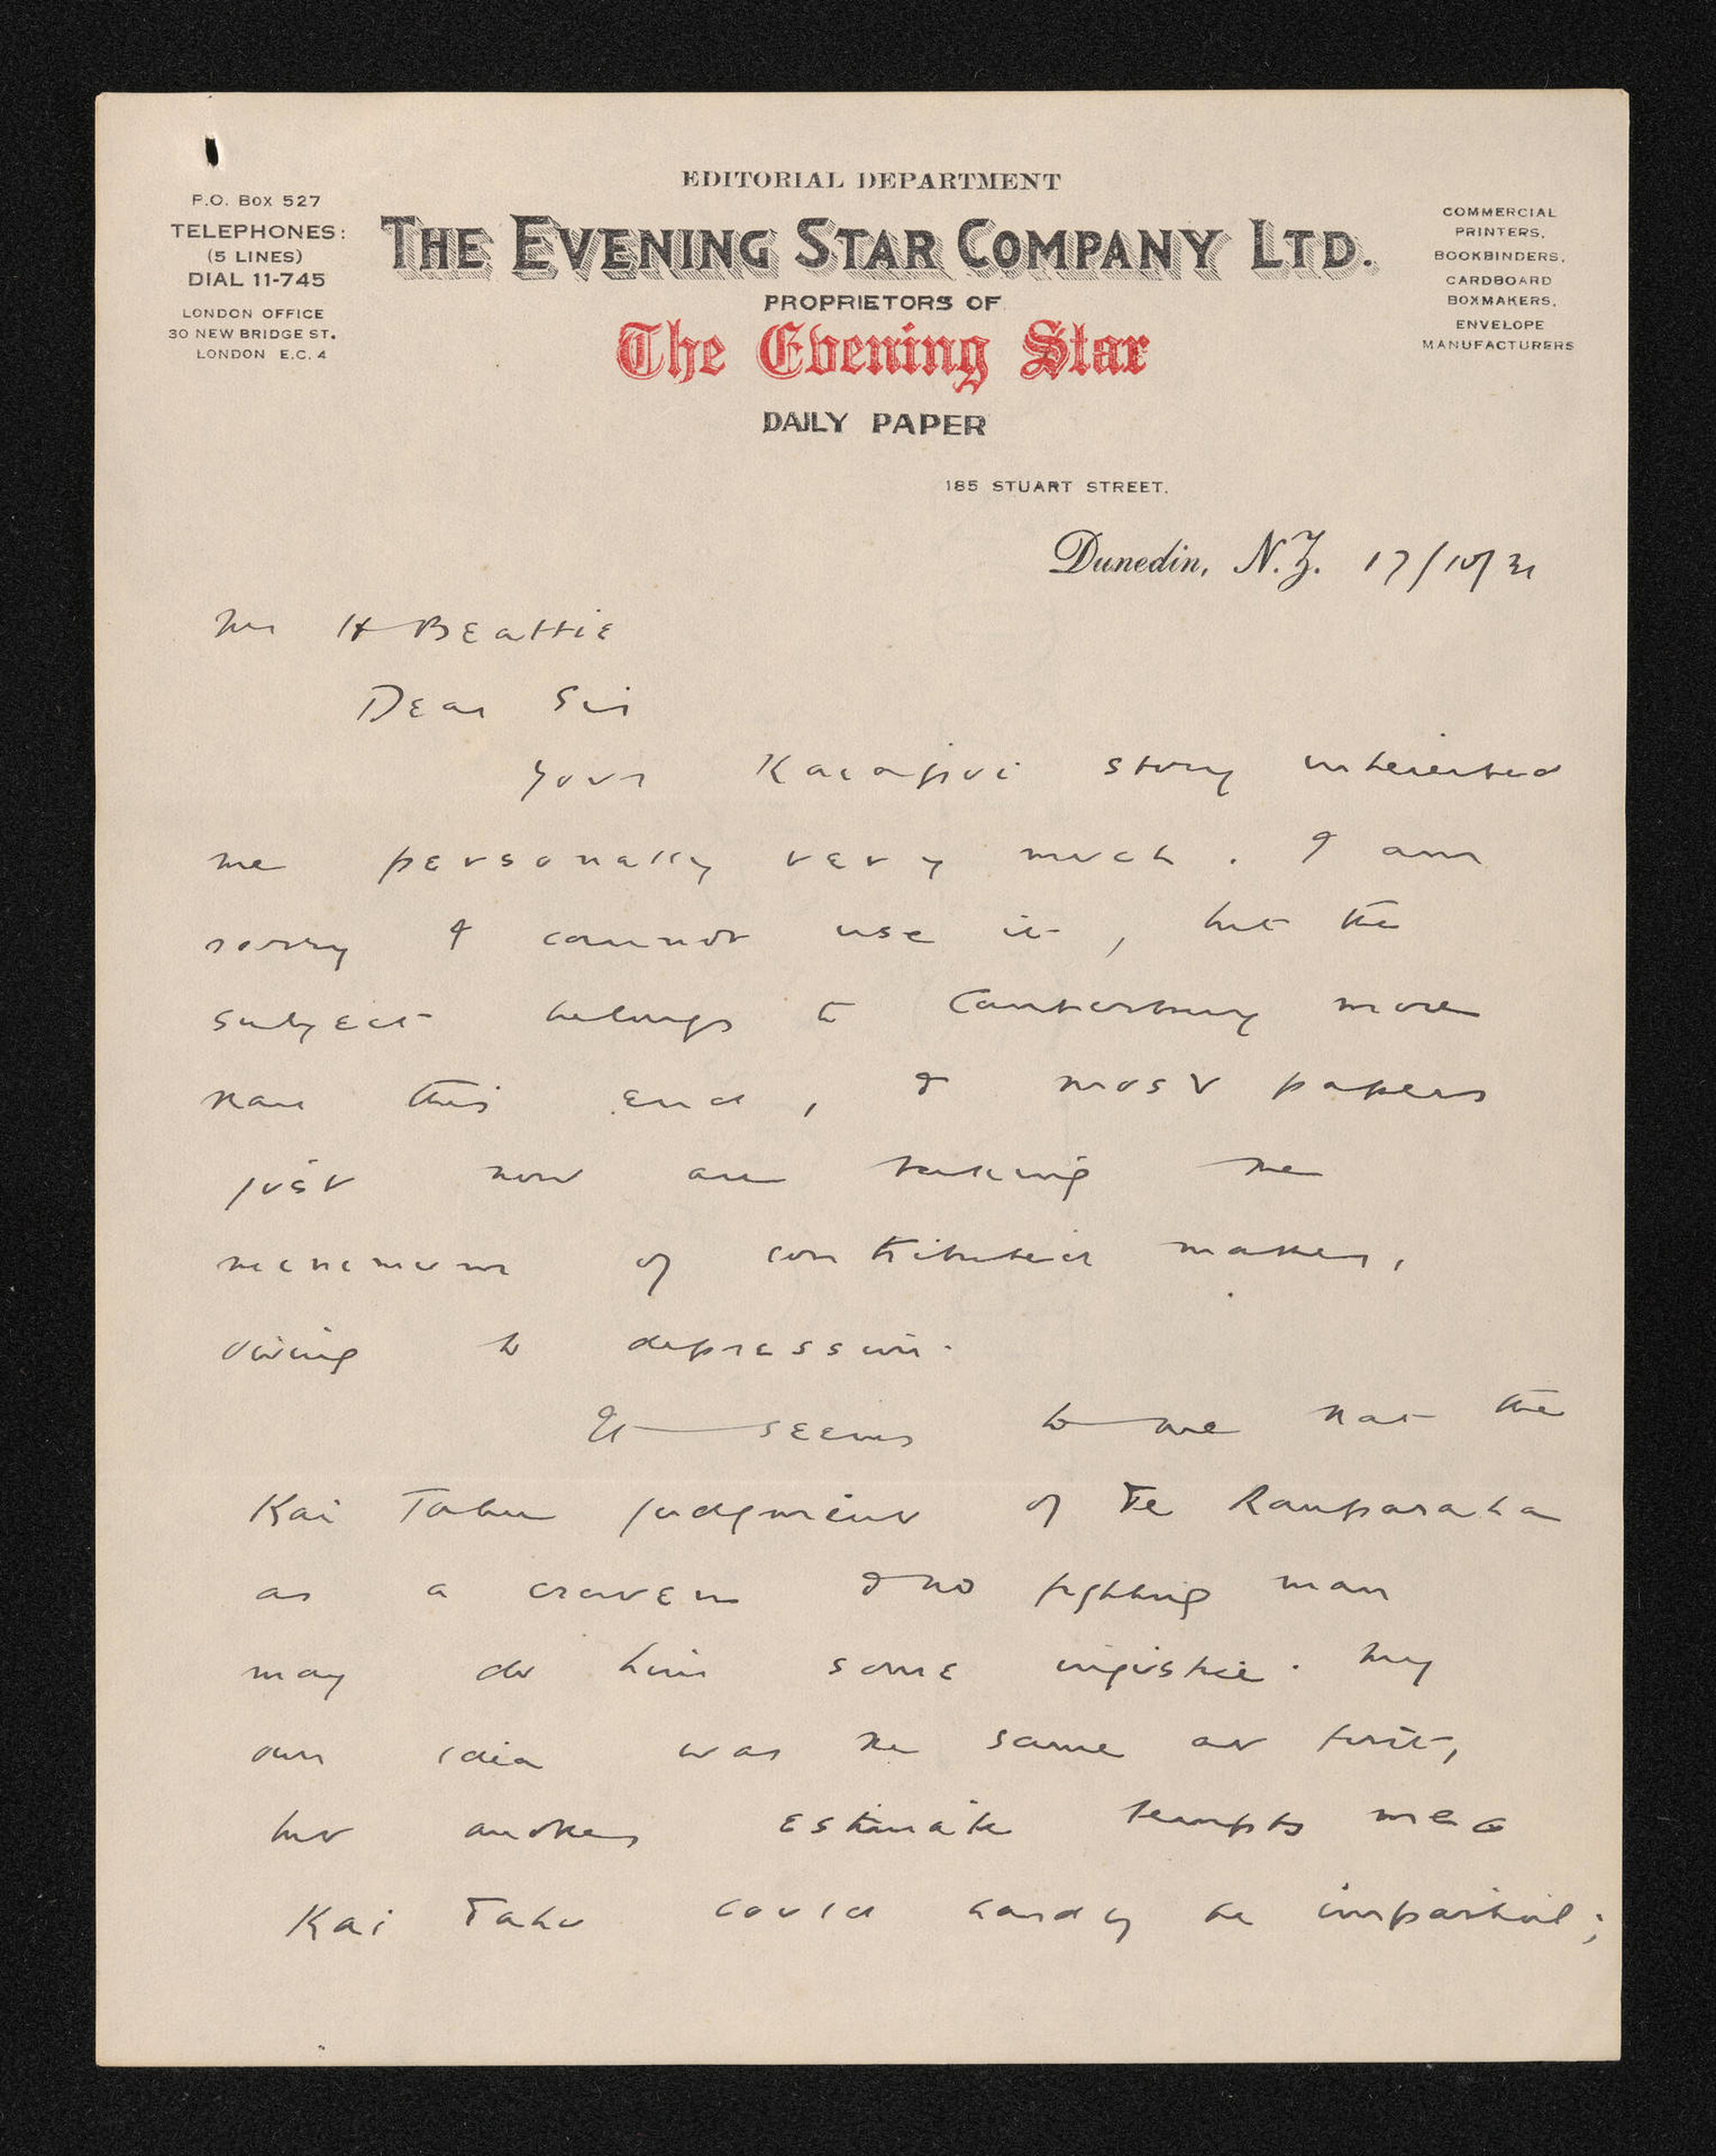 EDITORIAL DEPARTMENT
P.O. Box 527
TELEPHONES:
(5 LINES)
DIAL 11-745
LONDON OFFICE
30 NEW BRIDGE ST.
LONDON E.C. 4
THE EVENING STAR COMPANY LTD.
PROPRIETORS OF
The Evening Star
DAILY PAPER
COMMERCIAL
PRINTERS,
BOOKBINDERS,
CARDBOARD
BOXMAKERS,
ENVELOPE
MANUFACTURERS
185 STUART STREET.
Dunedin, N.Z. 17/10/31
Mr H Beattie
Dear Sir
Your Kaiapoi story interested
me personally very much. I am
sorry I cannot use it, but the
subject belongs to Canterbury more
than this end, & most papers
just now are taking the
minimum of contributed matter,
owing to depression.
It seems to me that the
Kai Tahu judgment of Te Rauparaha
as a craven & no fighting man
may do him some injustice. My
own idea was the same at first,
but another estimate tempts me
Kai Tahu could hardly be impartial;